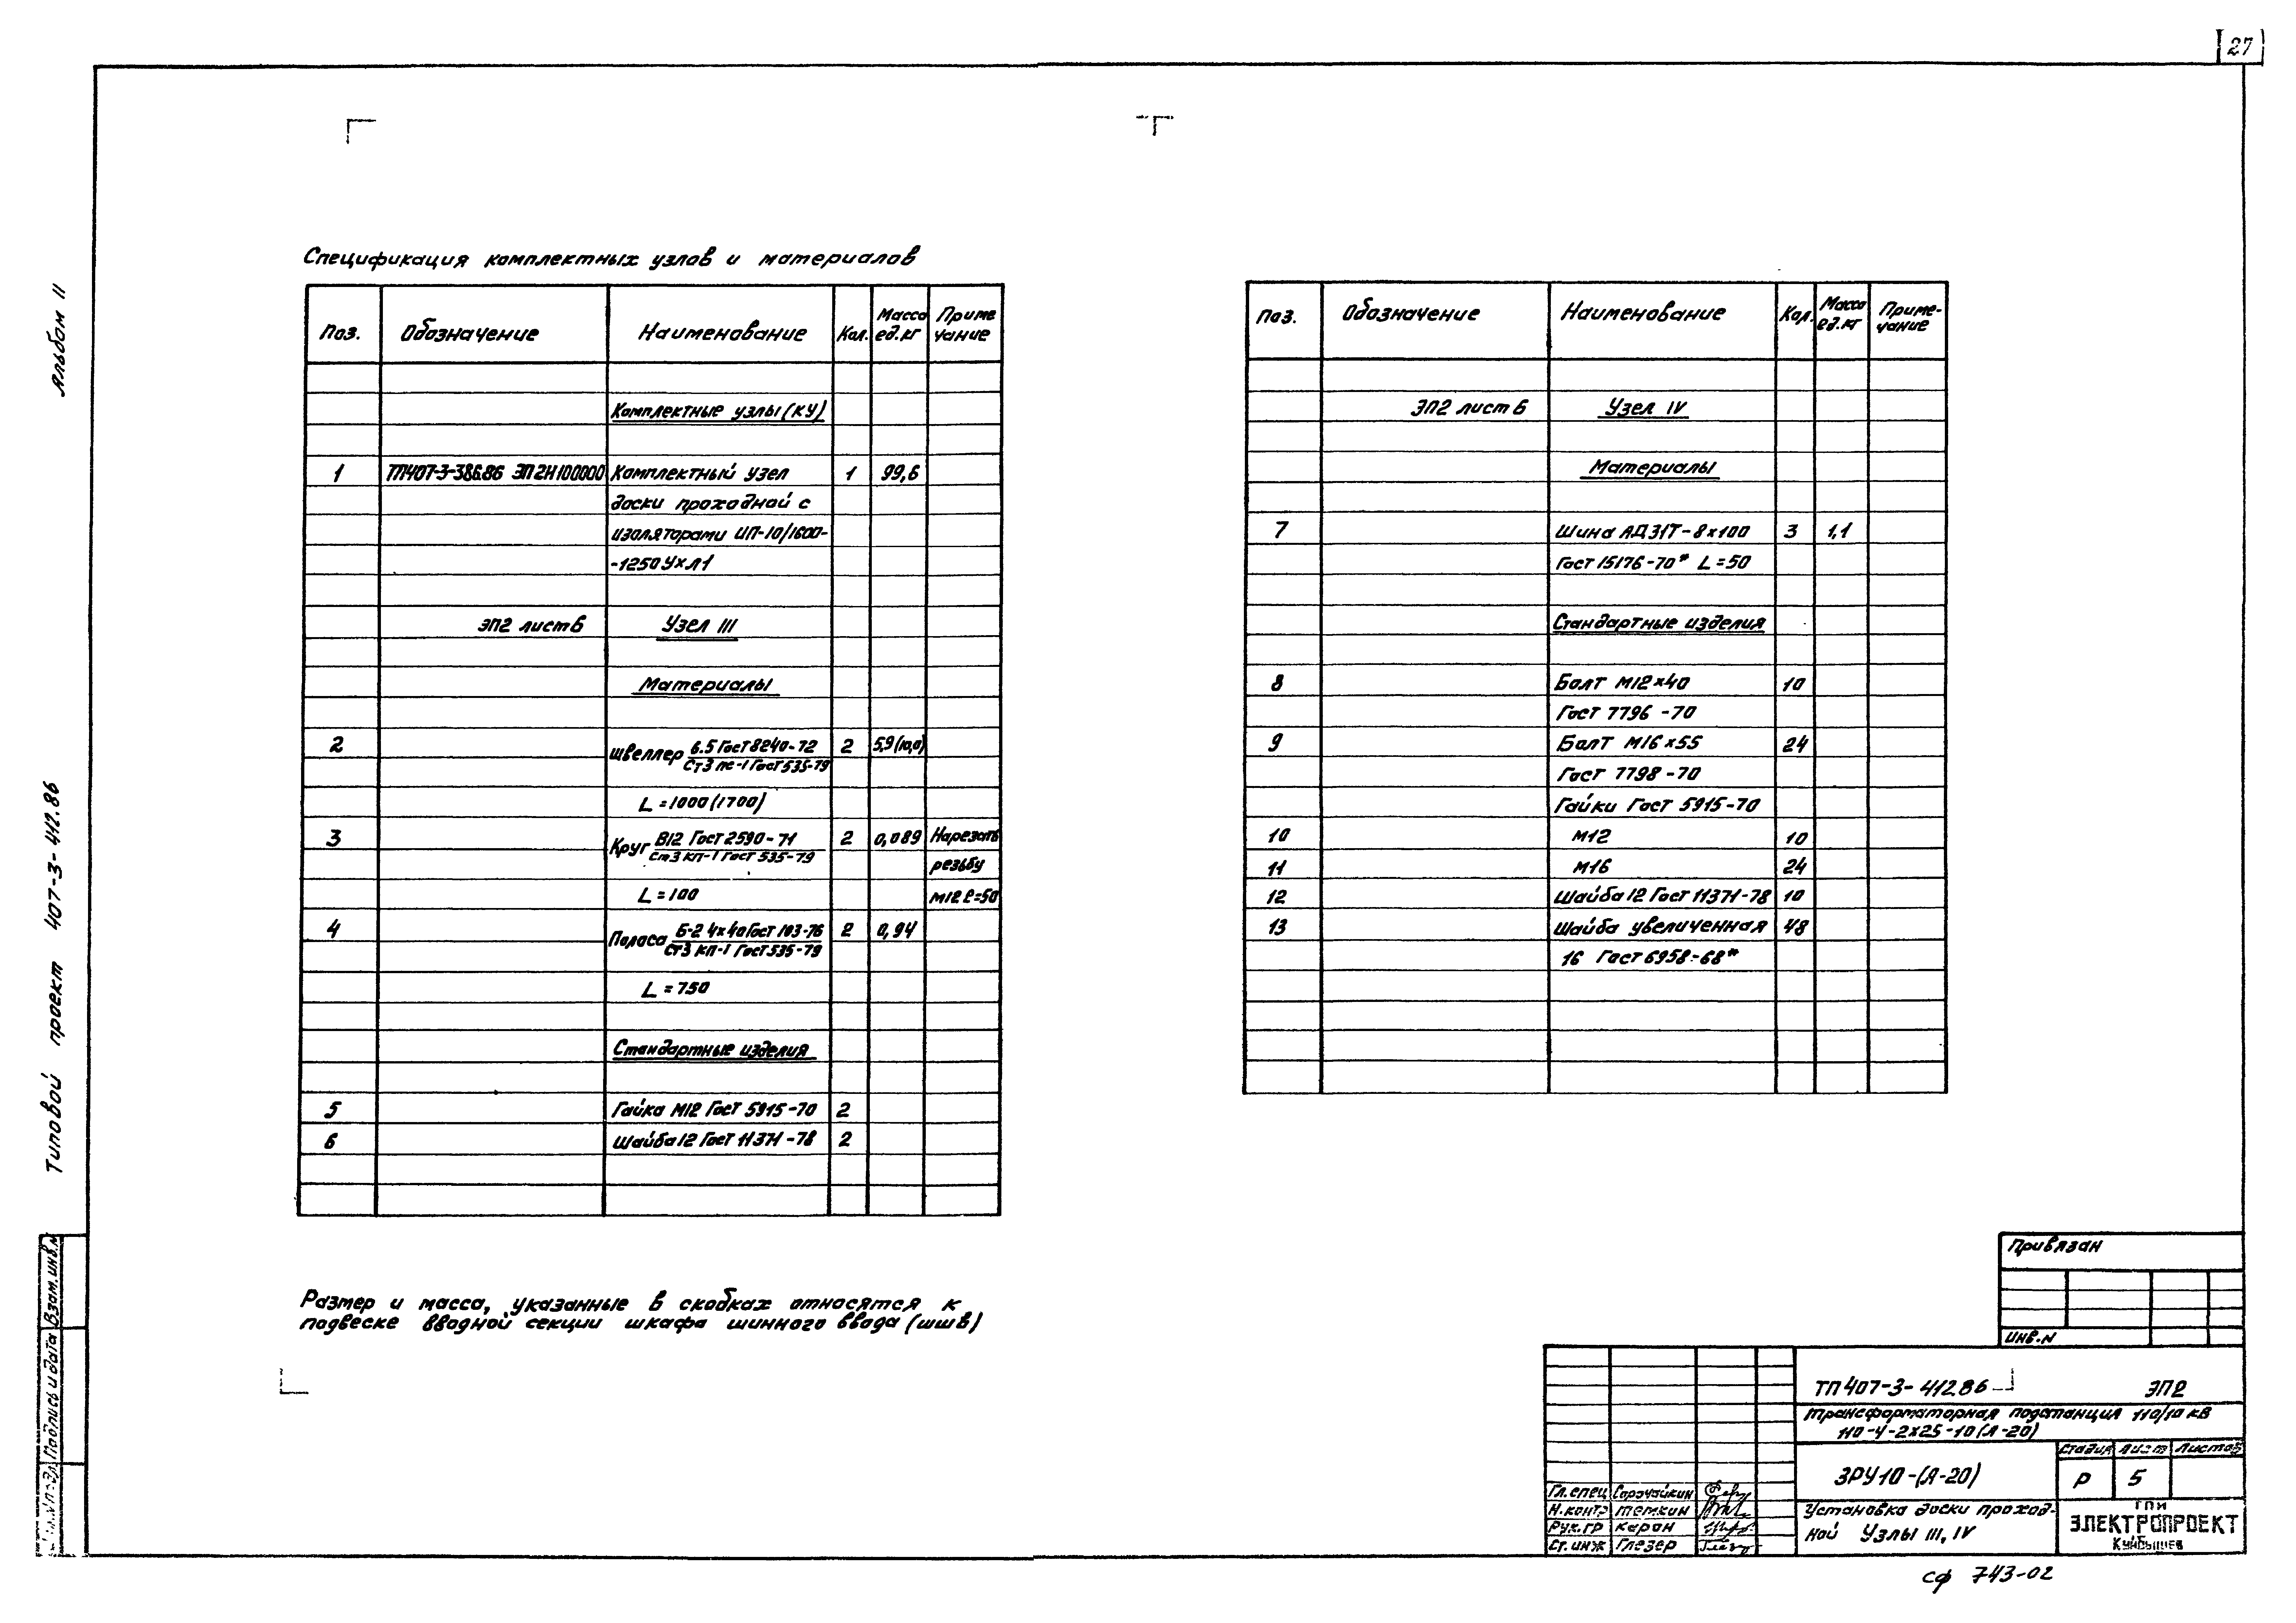 27
Альбом II
Типовой проект 407-3-412.86
Взам.инв.№
Подпись и дата
Спецификация комплектных узлов и материалов
Поз. Обозначение Наименование Кол. Масса ед.кг Приме чание
Комплектные узлы (КУ)
1 ТП407-3-386.86 ЭП2И100000 Комплектный узел 1 99,6
доски проходной с
изоляторами ИП-10/1600-
-1250 УХЛ1
ЭП2 лист 6 Узел III
Материалы
2 Швеллер 6.5 Гост 8240-72 2 5,9(10,0)
Ст3 пс-1 Гост 535-79
L=1000(1700)
3 Круг В12 Гост 2590-71 2 0,089 Нарезать
Ст3 кп-1 Гост 535-79 резьбу
L=100 М12 ℓ=50
4 Полоса Б-2 4х40 Гост 103-76 2 0,94
Ст3 кп-1 Гост 535-79
L=750
Стандартные изделия
5 Гайка М12 Гост 5915-70 2
6 Шайба 12 Гост 11371-78 2
Размер и масса, указанные в скобках относятся к
подвеске вводной секции шкафа шинного ввода (шшв)
Поз. Обозначение Наименование Кол. Масса ед.кг Приме-чание
ЭП2 лист 6 Узел IV
Материалы
7 Шина АД31Т-8х100 3 1,1
Гост 15176-70* L=50
Стандартные изделия
8 Болт М12х40 10
Гост 7796-70
9 Болт М16х55 24
Гост 7798-70
Гайки Гост 5915-70
10 М12 10
11 М16 24
12 Шайба 12 Гост 11371-78 10
13 Шайба увеличенная 48
16 Гост 6958-68*
Привязан
Инв.№
ТП 407-3-412.86 ЭП2
Трансформаторная подстанция 110/10 кВ
110-4-2х25-10(А-20)
ЗРУ10-(А-20)
Стадия Лист Листов
Р 5
Гл.спец Сорочайкин
Н.контр Темкин
Рук.гр Карон
Ст.инж Глезер
Установка доски проход-
ной Узлы III, IV
ГПИ
ЭЛЕКТРОПРОЕКТ
Куйбышев
СФ 743-02